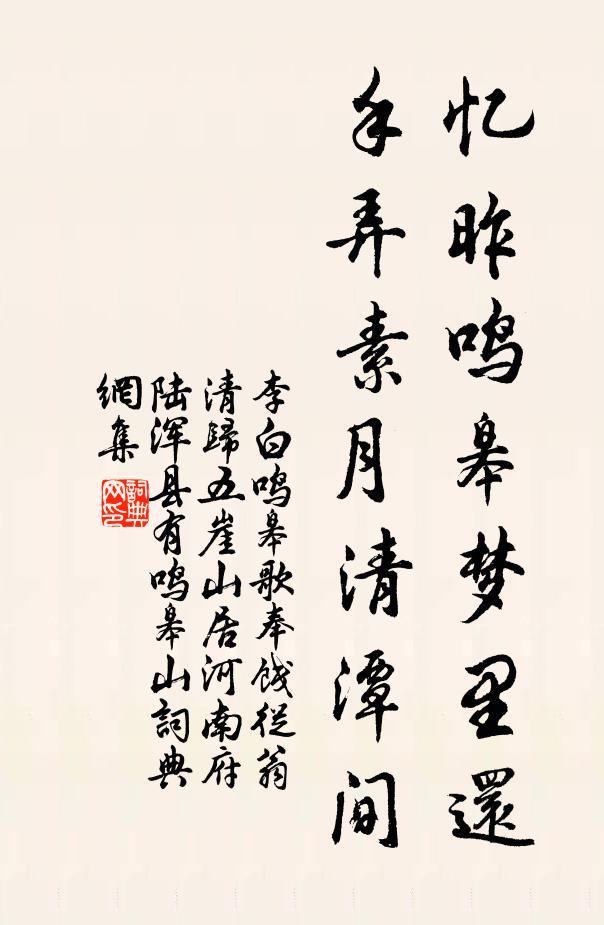 忆昨鸣皋梦里還
手弄素月清潭间
李白鸣皋歌奉饯從翁
清歸五崖山居河南府
陆浑县有鸣皋山詞典
網集
詞典网印